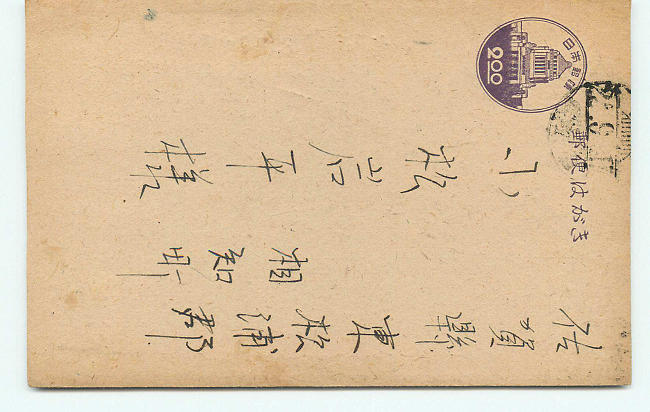 日本郵便
200
郵便はがき
佐賀縣東松浦郡
相知町
小松岩平様